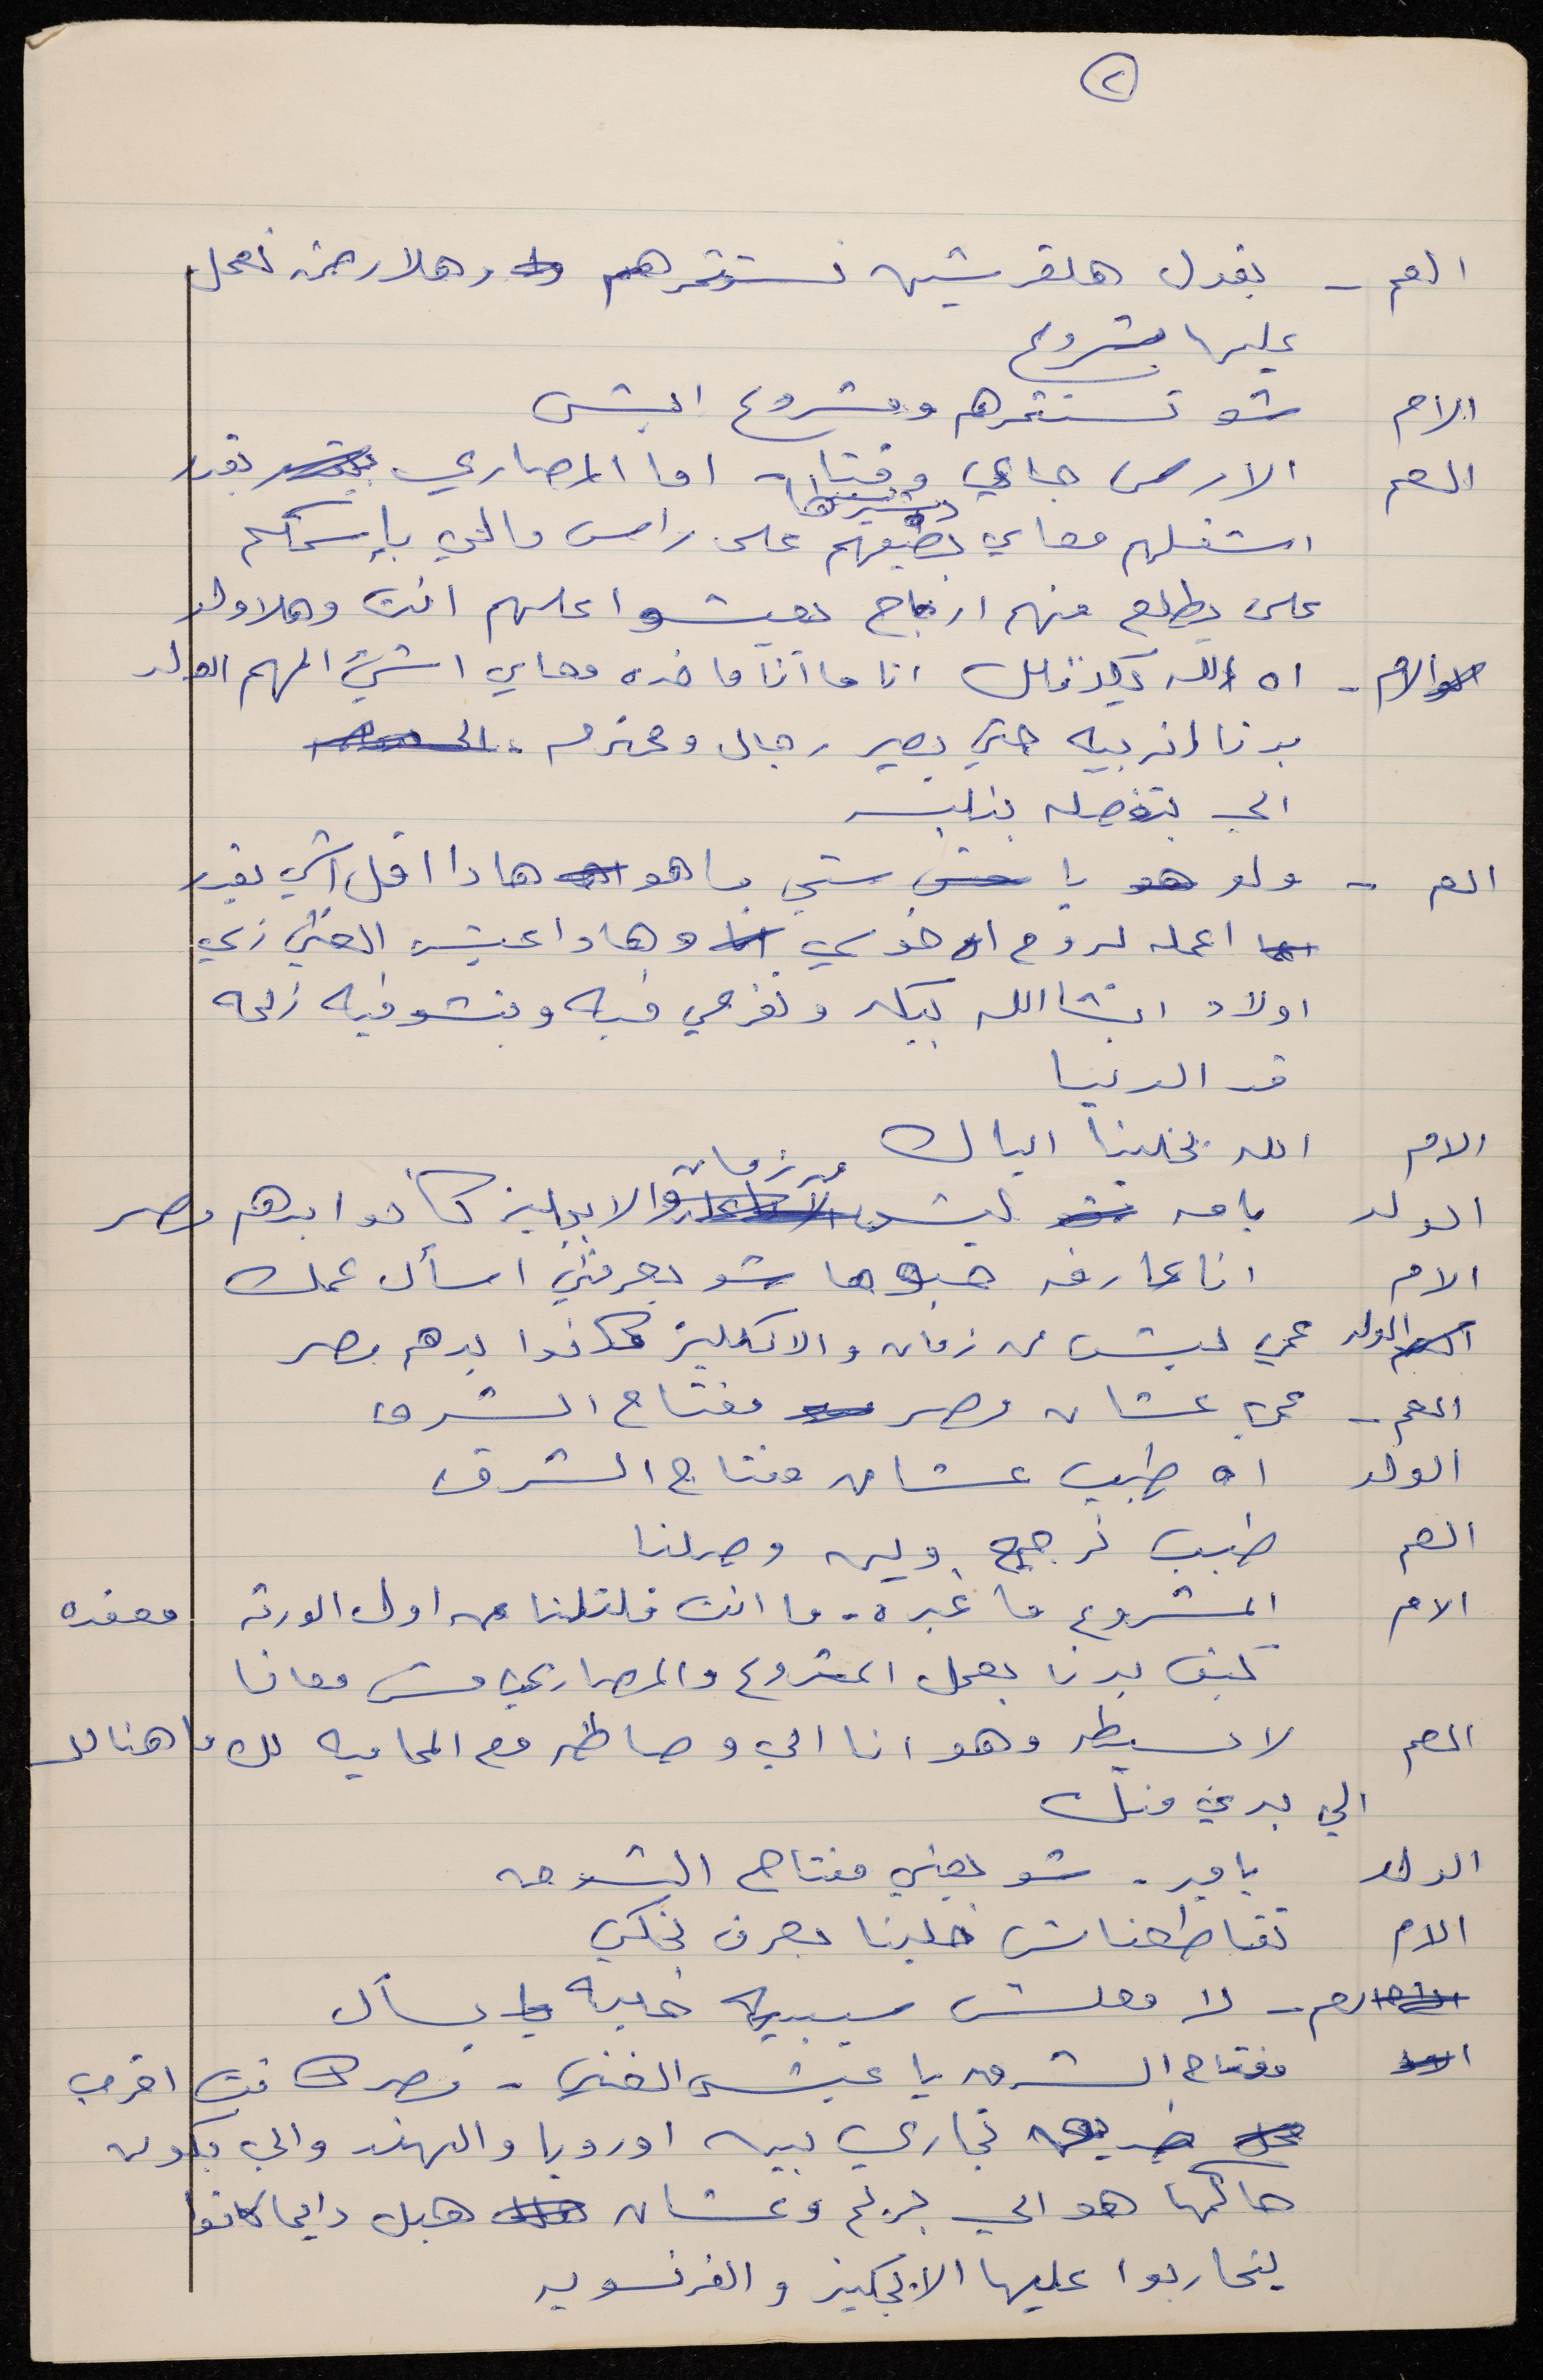 ٢
العم - بقول هلقرشين نستثمرهم وهلارض نعمل
عليها مشروع
الام شو تستثمرهم ومشروع ايش
العم الارض جاي وقتها - اما المصاري بقدر
اشغلهم معاي بضيفهم على راس مالي بإسمكم
على يطلع منهم ارباح بعيشوا عليهم انت وهلاولاد
الام - اه الله انا ما اناماخده معاي اشي المهم الولد
بدنا انربيه حتى يصير رجال ومحترم -
الي بتوصله بنلبسه
العم - ولو يا ستي ما هو هادا اقل اشي بقدر
اعمله لروح اخوي وهادا عيش الغني زي
اولاد انشاالله بيكبر وتفرحي فيه وبنشوفيه زلمه
قد الدنيا
الام الله يخلينا اياك
الولد يامه ليش من زمان والانجليز كانوا بدهم مصر
الام انا عارفه شو بعرفني اسأل عمك
الولد عمي ليش من زمان والانكليز كانوا بدهم مصر
العم - عمي عشان مصر مفتاح الشرق
الولد اه طيب عشان مفتاح الشرق
العم طيب نرجع وين وصلنا
الام المشروع ما غيره - ما انت قلتلنا من اول الورقه معقده
كيف بدنا بعمل المشروع والمصاري مش معانا
العم لا بسيطه وهو انا الي وصاطه مع المحاميه كل ما هنالك
الي بدي منك
الولد يامه - شو يعني مفتاح الشرق
الام تقاطعناش خلينا نعرف نحكي
العم - لا معلش سيبيه خليه يسأل
مفتاح الشرق يا عيش الغني - مصر كانت اقرب
طريق تجاري بين اوروبا والهند والي بكون
حاكمها هو الي بربح وعشان هيك دايما كانوا
يتحاربوا عليها الانجليز والفرنسويه